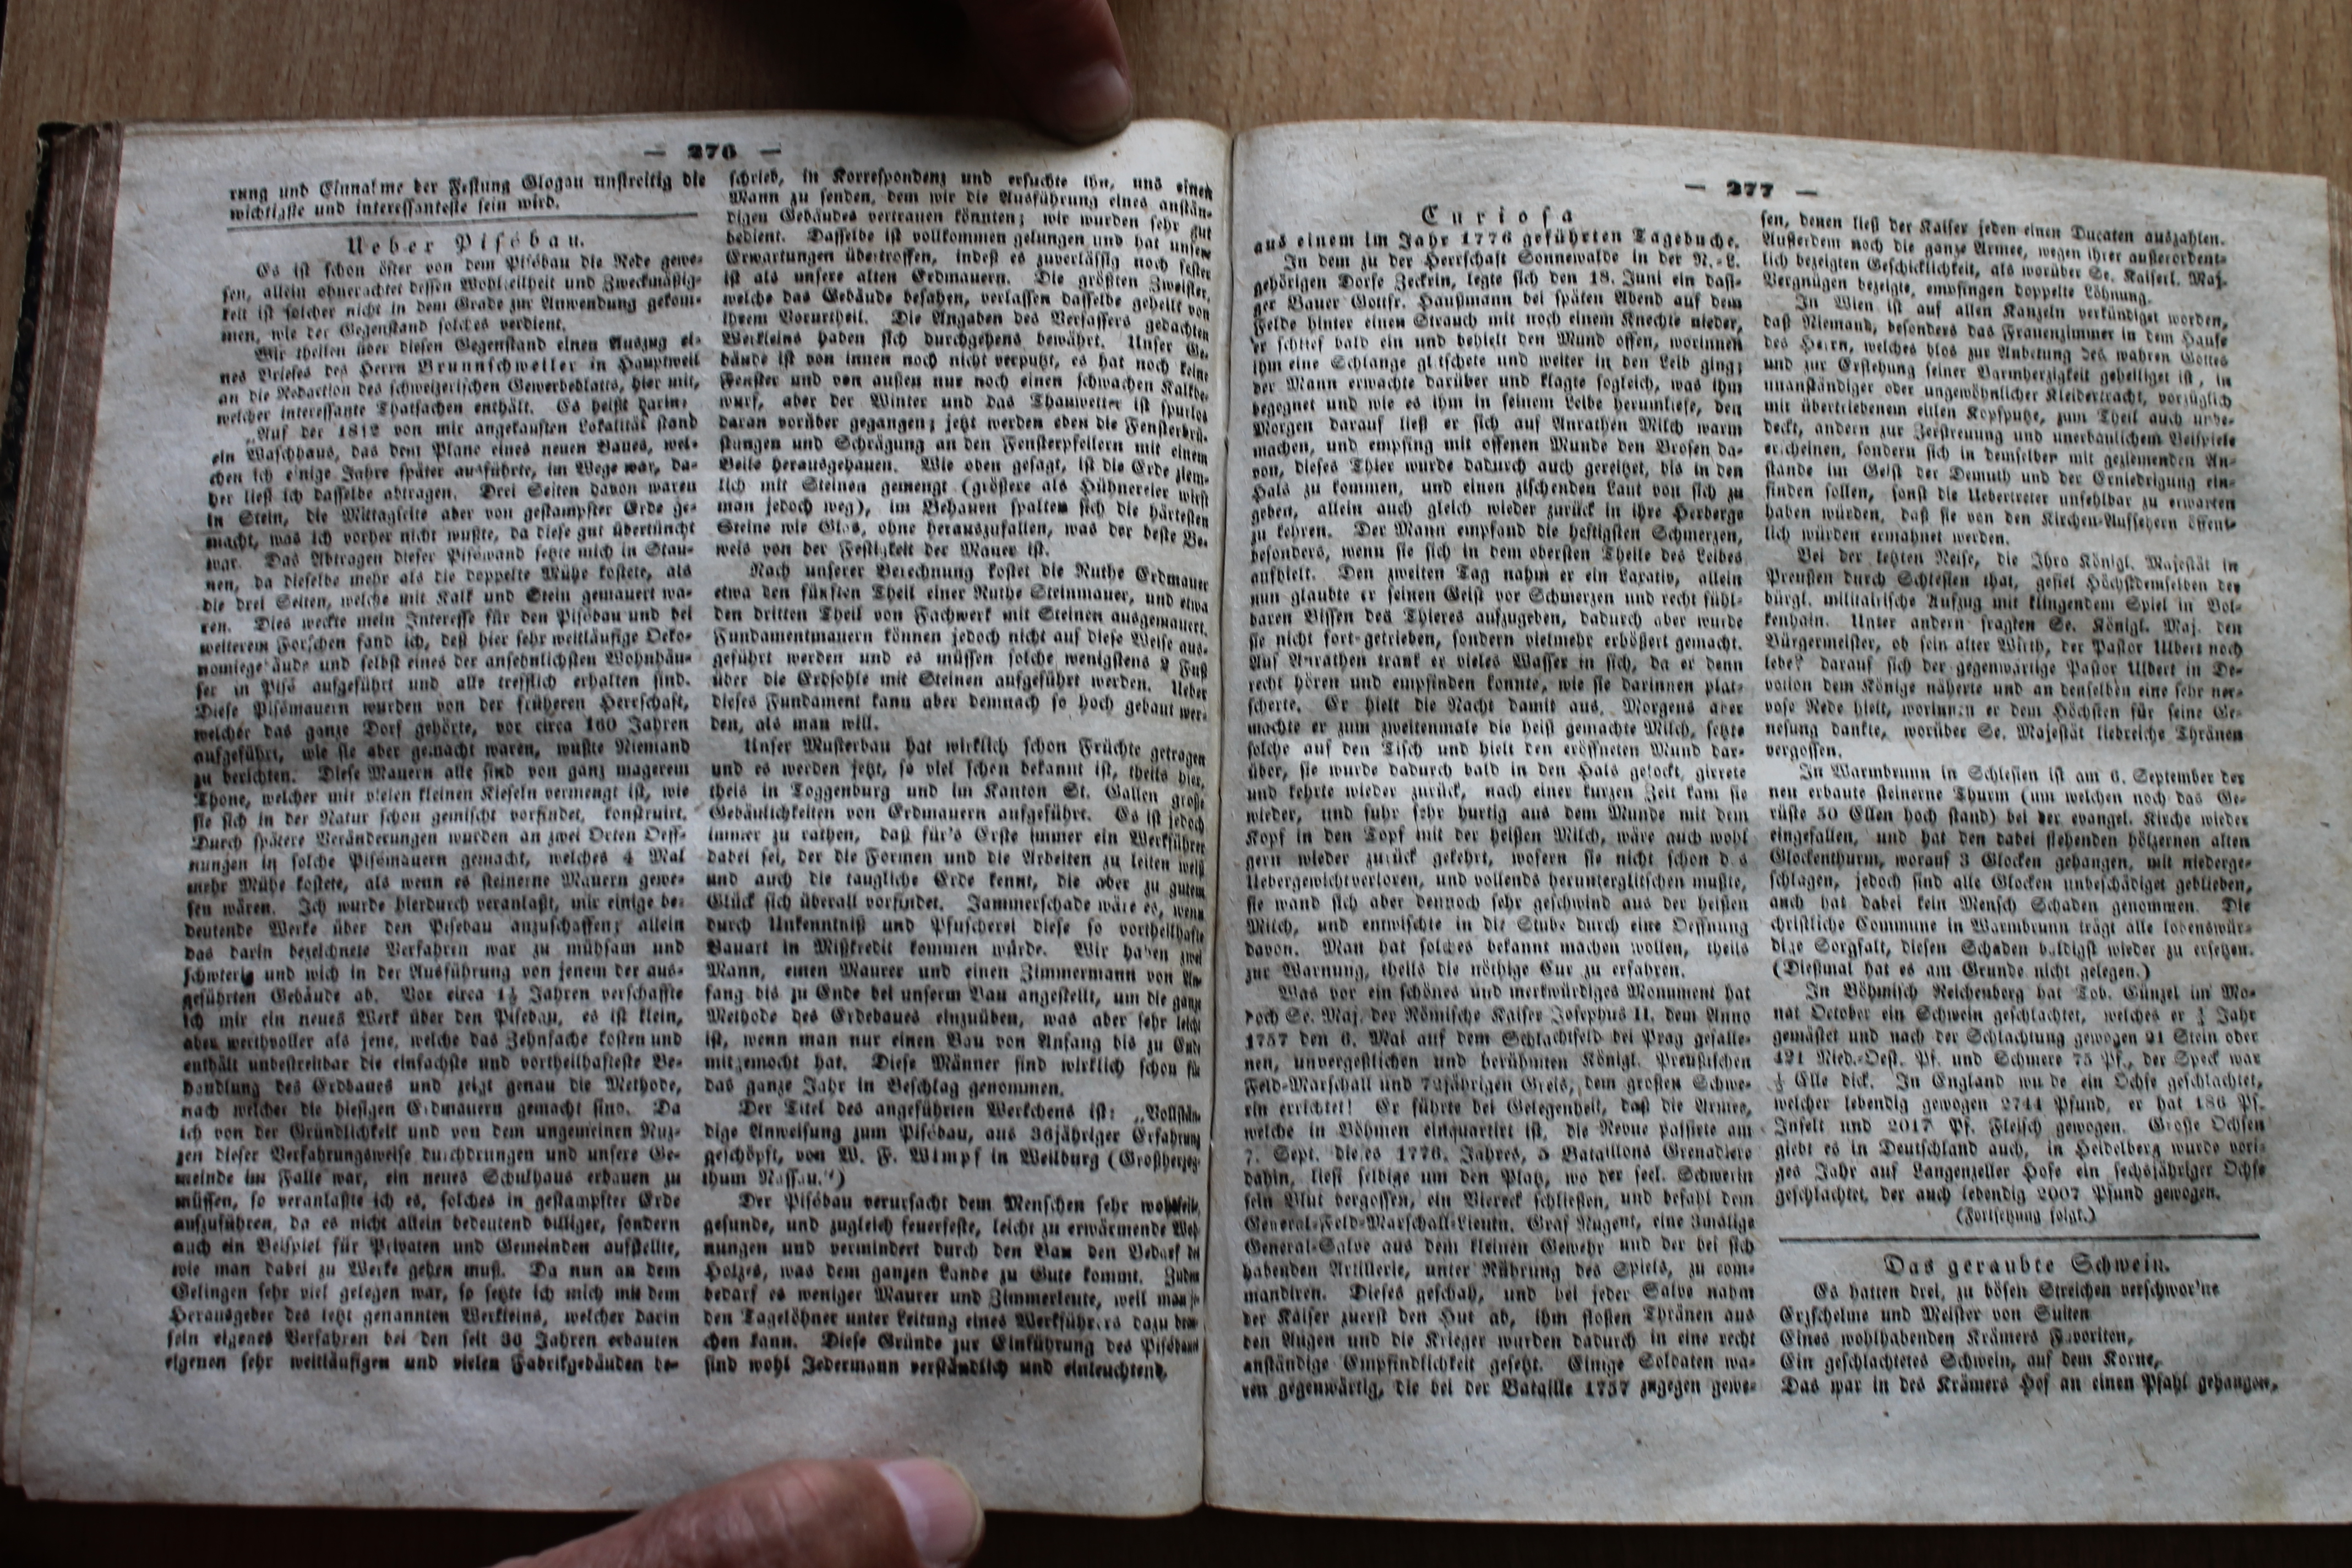 — 276 —
rung und Einnahme der Festung Glogau unstreitig die
wichtigste und interessanteste sein wird.
Ueber Pisébau.
Es ist schon öfter von dem Pisébau die Rede gewe-
sen, allein ohnerachtet dessen Wohlfeilheit und Zweckmäßig-
keit ist solcher nicht in dem Grade zur Anwendung gekom-
men, wie der Gegenstand solches verdient.
Wir theilen über diesen Gegenstand einen Auszug ei-
nes Briefes des Herrn Brunnschweiler in Hauptweil
an die Redaction des schweizerischen Gewerbeblatts, hier mit,
welcher interessante Thatsachen enthält. Es heißt darin:
„Auf der 1812 von mir angekauften Lokalität stand
ein Waschhaus, das dem Plane eines neuen Baues, wel-
chen ich einige Jahre später ausführte, im Wege war, da-
her ließ ich dasselbe abtragen. Drei Seiten davon waren
in Stein, die Mittagseite aber von gestampfter Erde ge-
macht, was ich vorher nicht wußte, da diese gut übertüncht
war. Das Abtragen dieser Piséwand setzte mich in Stau-
nen, da dieselbe mehr als die doppelte Mühe kostete, als
die drei Seiten, welche mit Kalk und Stein gemauert wa-
ren. Dies weckte mein Interesse für den Pisébau und bei
weiterem Forschen fand ich, daß hier sehr weitläufige Oeko-
nomiegebäude und selbst eines der ansehnlichsten Wohnhäu-
ser in Pisé aufgeführt und alle trefflich erhalten sind.
Diese Pisémauern wurden von der früheren Herrschaft,
welcher das ganze Dorf gehörte, vor circa 160 Jahren
aufgeführt, wie sie aber gemacht waren, wußte Niemand
zu berichten. Diese Mauern alle sind von ganz magerem
Thone, welcher mit vielen kleinen Kieseln vermengt ist, wie
sie sich in der Natur schon gemischt vorfindet, konstruirt.
Durch spätere Veränderungen wurden an zwei Orten Oeff-
nungen in solche Pisémauern gemacht, welches 4 Mal
mehr Mühe kostete, als wenn es steinerne Mauern gewe-
sen wären. Ich wurde hierdurch veranlaßt, mir einige be-
deutende Werke über den Pisebau anzuschaffen; allein
das darin bezeichnete Verfahren war zu mühsam und
schwierig und wich in der Ausführung von jenem der aus-
geführten Gebäude ab. Vor circa 1½ Jahren verschaffte
ich mir ein neues Werk über den Pisebau, es ist klein,
aber werthvoller als jene, welche das Zehnfache kosten und
enthält unbestreitbar die einfachste und vortheilhafteste Be-
handlung des Erdbaues und zeigt genau die Methode,
nach welcher die hiesigen Erdmauern gemacht sind. Da
ich von der Gründlichkeit und von dem ungemeinen Nuz-
zen dieser Verfahrungsweise durchdrungen und unsere Ge-
meinde im Falle war, ein neues Schulhaus erbauen zu
müssen, so veranlaßte ich es, solches in gestampfter Erde
aufzuführen, da es nicht allein bedeutend billiger, sondern
auch ein Beispiel für Privaten und Gemeinden aufstellte,
wie man dabei zu Werke gehen muß. Da nun an dem
Gelingen sehr viel gelegen war, so setzte ich mich mit dem
Herausgeber des letzt genannten Werkleins, welcher darin
sein eigenes Verfahren bei den seit 30 Jahren erbauten
eigenen sehr weitläufigen und vielen Fabrikgebäuden be-
schrieb, in Korrespondenz und ersuchte ihn, uns einen
Mann zu senden, dem wir die Ausführung eines anstän-
digen Gebäudes vertrauen könnten; wir wurden sehr gut
bedient. Dasselbe ist vollkommen gelungen und hat unsere
Erwartungen übertroffen, indeß es zuverlässig noch fester
ist als unsere alten Erdmauern. Die größten Zweifler,
welche das Gebäude besahen, verlassen dasselbe geheilt von
ihrem Vorurtheil. Die Angaben des Verfassers gedachten
Werkleins haben sich durchgehens bewährt. Unser Ge-
bäude ist von innen noch nicht verputzt, es hat noch keine
Fenster und von außen nur noch einen schwachen Kalkbe-
wurf, aber der Winter und das Thauwetter ist spurlos
daran vorüber gegangen; jetzt werden eben die Fensterbrü-
stungen und Schrägung an den Fensterpfeilern mit einem
Beile herausgehauen. Wie oben gesagt, ist die Erde ziem-
lich mit Steinen gemengt (größere als Hühnereier wirft
man jedoch weg), im Behauen spalten sich die härtesten
Steine wie Glas, ohne herauszufallen, was der beste Be-
weis von der Festigkeit der Mauer ist.
Nach unserer Berechnung kostet die Ruthe Erdmauer
etwa den fünften Theil einer Ruthe Steinmauer, und etwa
den dritten Theil von Fachwerk mit Steinen ausgemauert.
Fundamentmauern können jedoch nicht auf diese Weise aus-
geführt werden und es müssen solche wenigstens 2 Fuß
über die Erdsohle mit Steinen aufgeführt werden. Ueber
dieses Fundament kann aber demnach so hoch gebaut wer-
den, als man will.
Unser Musterbau hat wirklich schon Früchte getragen
und es werden jetzt, so viel schon bekannt ist, theils hier,
theis in Toggenburg und im Kanton St. Gallen große
Gebäulichkeiten von Erdmauern aufgeführt. Es ist jedoch
immer zu rathen, daß für's Erste immer ein Werkführer
dabei sei, der die Formen und die Arbeiten zu leiten weiß
und auch die taugliche Erde kennt, die aber zu gutem
Glück sich überall vorfindet. Jammerschade wäre es, wenn
durch Unkenntniß und Pfuscherei diese so vortheilhafte
Bauart in Mißkredit kommen würde. Wir haben zwei
Mann, einen Maurer und einen Zimmermann von An-
fang bis zu Ende bei unserm Bau angestellt, um die ganze
Methode des Erdebaues einzuüben, was aber sehr leicht
ist, wenn man nur einen Bau von Anfang bis zu Ende
mitgemacht hat. Diese Männer sind wirklich schon für
das ganze Jahr in Beschlag genommen.
Der Titel des angeführten Werkchens ist: „Vollstän-
dige Anweisung zum Pisébau, aus 36jähriger Erfahrung
geschöpft, von W. F. Wimpf in Weilburg (Großherzog-
thum Nassau.“)
Der Pisébau verursacht dem Menschen sehr wohlfeile,
gesunde, und zugleich feuerfeste, leicht zu erwärmende Woh-
nungen und vermindert durch den Bau den Bedarf des
Holzes, was dem ganzen Lande zu Gute kommt. Zudem
bedarf es weniger Maurer und Zimmerleute, weil man ja
den Tagelöhner unter Leitung eines Werkführers dazu brau-
chen kann. Diese Gründe zur Einführung des Pisébaues
sind wohl Jedermann verständlich und einleuchtend.
— 277 —
Curiosa
aus einem im Jahr 1776 geführten Tagebuche.
In dem zu der Herrschaft Sonnewalde in der N.-L.
gehörigen Dorfe Zeckrin, legte sich den 18. Juni ein dasi-
ger Bauer Gottfr. Haußmann bei späten Abend auf dem
Felde hinter einen Strauch mit noch einem Knechte nieder,
er schlief bald ein und behielt den Mund offen, worinnen
ihm eine Schlange glitschete und weiter in den Leib ging;
der Mann erwachte darüber und klagte sogleich, was ihm
begegnet und wie es ihm in seinem Leibe herumliefe, den
Morgen darauf ließ er sich auf Anrathen Milch warm
machen, und empfing mit offenen Munde den Brosen da-
von, dieses Thier wurde dadurch auch gereitzet, bis in den
Hals zu kommen, und einen zischenden Laut von sich zu
geben, allein auch gleich wieder zurück in ihre Herberge
zu kehren. Der Mann empfand die heftigsten Schmerzen,
besonders, wenn sie sich in dem obersten Theile des Leibes
aufhielt. Den zweiten Tag nahm er ein Laxativ, allein
nun glaubte er seinen Geist vor Schmerzen und recht fühl-
baren Bissen des Thieres aufzugeben, dadurch aber wurde
sie nicht fort-getrieben, sondern vielmehr erbößert gemacht.
Auf Anrathen trank er vieles Wasser in sich, da er denn
recht hören und empfinden konnte, wie sie darinnen plat-
scherte. Er hielt die Nacht damit aus. Morgens aber
machte er zum zweitenmale die heiß gemachte Milch, setzte
solche auf den Tisch und hielt den eröffneten Mund dar-
über, sie wurde dadurch bald in den Hals gelockt, girrete
und kehrte wieder zurück, nach einer kurzen Zeit kam sie
wieder, und fuhr sehr hurtig aus dem Munde mit dem
Kopf in den Topf mit der heißen Milch, wäre auch wohl
gern wieder zurück gekehrt, wofern sie nicht schon das
Uebergewicht verloren, und vollends herunterglitschen mußte,
sie wand sich aber dennoch sehr geschwind aus der heißen
Milch, und entwischte in die Stube durch eine Oeffnung
davon. Man hat solches bekannt machen wollen, theils
zur Warnung, theils die nöthige Cur zu erfahren.
Was vor ein schönes und merkwürdiges Monument hat
doch Se. Maj. der Römische Kaiser Josephus II. dem Anno
1757 den 6. Mai auf dem Schlachtfeld bei Prag gefalle-
nen, unvergeßlichen und berühmten Königl. Preußischen
Feld-Marschall und 72jährigen Greis, dem großen Schwe-
rin errichtet! Er führte bei Gelegenheit, daß die Armee,
welche in Böhmen einquartirt ist, die Revue passirte am
7. Sept. dieses 1776. Jahres, 5 Bataillons Grenadiere
dahin, ließ selbige um den Platz, wo der seel. Schwerin
sein Blut vergossen, ein Viereck schließen, und befahl dem
General-Feld-Marschall-Lieutn. Graf Nugent, eine 3malige
General-Salve aus dem kleinen Gewehr und der bei sich
habenden Artillerie, unter Rührung des Spiels, zu com-
mandiren. Dieses geschah, und bei jeder Salve nahm
der Kaiser zuerst den Hut ab, ihm floßen Thränen aus
den Augen und die Krieger wurden dadurch in eine recht
anständige Empfindlichkeit gesetzt. Einige Soldaten wa-
ren gegenwärtig, die bei der Bataille 1757 zugegen gewe-
sen, denen ließ der Kaiser jeden einen Ducaten auszahlen.
Außerdem noch die ganze Armee, wegen ihrer außerordent-
lich bezeigten Geschicklichkeit, als worüber Se. Kaiserl. Maj.
Vergnügen bezeigte, empfingen doppelte Löhnung.
In Wien ist auf allen Kanzeln verkündiget worden,
daß Niemand, besonders das Frauenzimmer in dem Hause
des Herrn, welches blos zur Anbetung des wahren Gottes
und zur Erstehung seiner Barmherzigkeit geheiliget ist, in
unanständiger oder ungewöhnlicher Kleidertracht, vorzüglich
mit übertriebenem eitlen Kopfputze, zum Theil auch unbe-
deckt, andern zur Zerstreuung und unerbaulichem Beispiele
erscheinen, sondern sich in demselben mit geziemenden An-
stande im Geist der Demuth und der Erniedrigung ein-
finden sollen, sonst die Uebertreter unfehlbar zu erwarten
haben würden, daß sie von den Kirchen-Aufsehern öffent-
lich würden ermahnet werden.
Bei der letzten Reise, die Ihro Königl. Majestät in
Preußen durch Schlesien that, gefiel Höchstdemselben der
bürgl. militairische Aufzug mit klingendem Spiel in Bol-
kenhain. Unter andern fragten Se. Königl. Maj. den
Bürgermeister, ob sein alter Wirth, der Pastor Ulbert noch
lebe? darauf sich der gegenwärtige Pastor Ulbert in De-
votion dem Könige näherte und an denselben eine sehr ner-
vose Rede hielt, worinnen er dem Höchsten für seine Ge-
nesung dankte, worüber Se. Majestät liebreiche Thränen
vergossen.
In Warmbrunn in Schlesien ist am 6. September der
neu erbaute steinerne Thurm (um welchen noch das Ge-
rüste 50 Ellen hoch stand) bei der evangel. Kirche wieder
eingefallen, und hat den dabei stehenden hölzernen alten
Glockenthurm, worauf 3 Glocken gehangen, mit niederge-
schlagen, jedoch sind alle Glocken unbeschädiget geblieben,
auch hat dabei kein Mensch Schaden genommen. Die
christliche Commune in Warmbrunn trägt alle lobenswür-
dige Sorgfalt, diesen Schaden baldigst wieder zu ersetzen.
(Diesmal hat es am Grunde nicht gelegen.)
In Böhmisch Reichenberg hat Tob. Günzel im Mo-
nat October ein Schwein geschlachtet, welches er ¾ Jahr
gemästet und nach der Schlachtung gewogen 21 Stein oder
421 Nied.-Oest. Pf. und Schmere 75 Pf., der Speck war
Elle dick. In England wurde ein Ochse geschlachtet,
welcher lebendig gewogen 2744 Pfund, er hat 186 Pf.
Inselt und 2017 Pf. Fleisch gewogen. Große Ochsen
giebt es in Deutschland auch, in Heidelberg wurde vori-
ges Jahr auf Langenzeller Hofe ein sechsjähriger Ochse
geschlachtet, der auch lebendig 2007 Pfund gewogen.
(Fortsetzung folgt.)
Das geraubte Schwein.
Es hatten drei, zu bösen Streichen verschwor'ne
Erzschelme und Meister von Suiten
Eines wohlhabenden Krämers Favoriten,
Ein geschlachtetes Schwein, auf dem Korne,
Das war in des Krämers Hof an einen Pfahl gehangen,